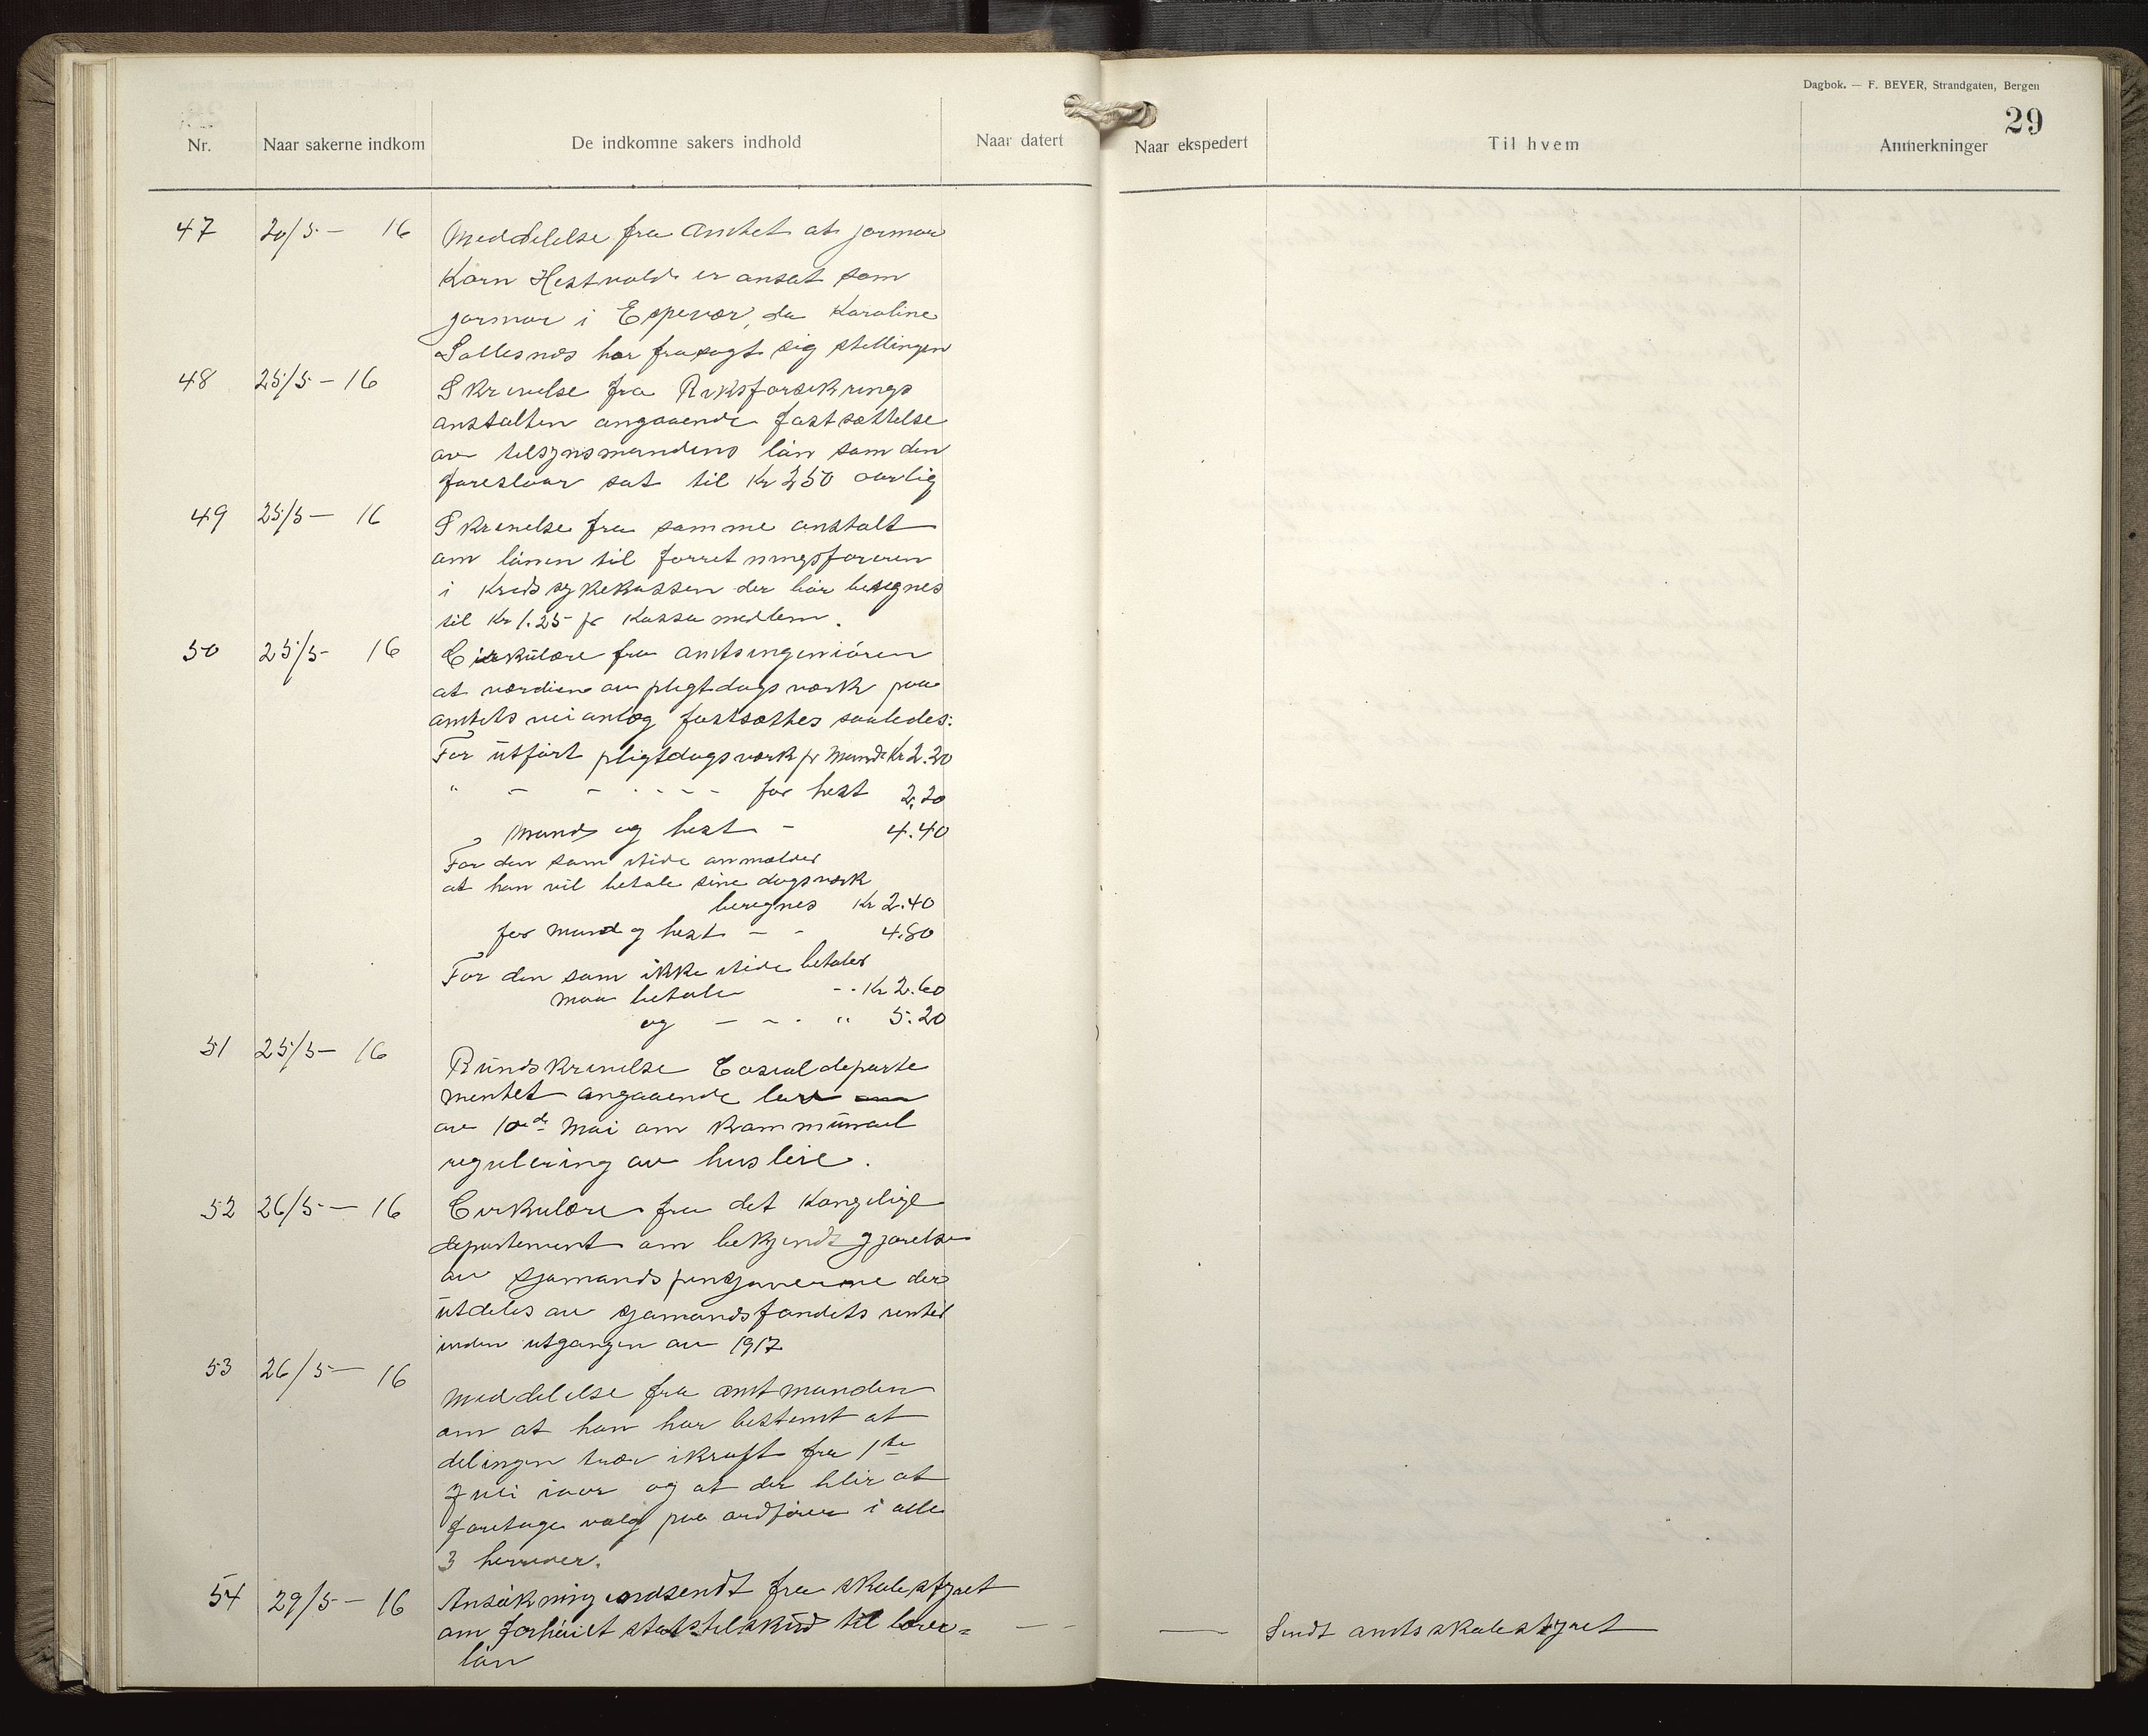 Dagbok. — F. BEYER, Strandgaten, Bergen
29
Nr. Naar sakerne indkom De indkomne sakers indhold Naar datert Naar ekspedert Til hvem Anmerkninger
47 20/5 - 16 Meddelelse fra Amtet at jormor
Karn Hestvold er ansat som
jormor i Espevær, da Karoline
Sallesnæs har frasagt sig stellingen
48 25/5 - 16 Skrivelse fra Riksforsikrings
anstalten angaaende fastsættelse
av tilsynsmandens lön som den
foreslaar sat til Kr 250 aarlig
49 25/5 - 16 Skrivelse fra samme anstalt
om lönen til forretningsföreren
i Kredssykekassen der bör beregnes
til Kr 1.25 pr Kassemedlem.
50 25/5 16 Cirkulære fra amtsingeniören
at værdien av pligtdagsværk paa
amtets veianlæg fastsættes saaledes:
For utfört pligtdagsværk pr Mand Kr 2.20
" - - - - - - for hest 2.20
" Mand og hest - 4.40
For den som itide anmelder
at han vil betale sine dagsværk
beregnes Kr 2.40
for mand og hest - - 4.80
For den som ikke itide betaler
maa betale - - Kr 2.60
og - - - " 5.20
51 25/5 - 16 Rundskrivelse Cosialdeparte
mentet angaaende lov om
av 10de Mai om kommunal
regulering av husleie.
52 26/5 - 16 Cirkulære fra det Kongelige
departement om bekjendtgjorelse
av sjømandspensjonerne der
utdeles av sjomandsfondets renter
inden utgangen av 1917
53 26/5 - 16 Meddelelse fra amtmanden
om at han har bestemt at
delingen trær ikraft fra 1ste
Juli iaar og at der blir at
foretage valg paa ordförer i alle
3 herreder.
54 29/5 - 16 Ansökning indsendt fra skolestyret
om forhöiet statstilskud til lærer= — - — Sendt amtsskolestyret
lön